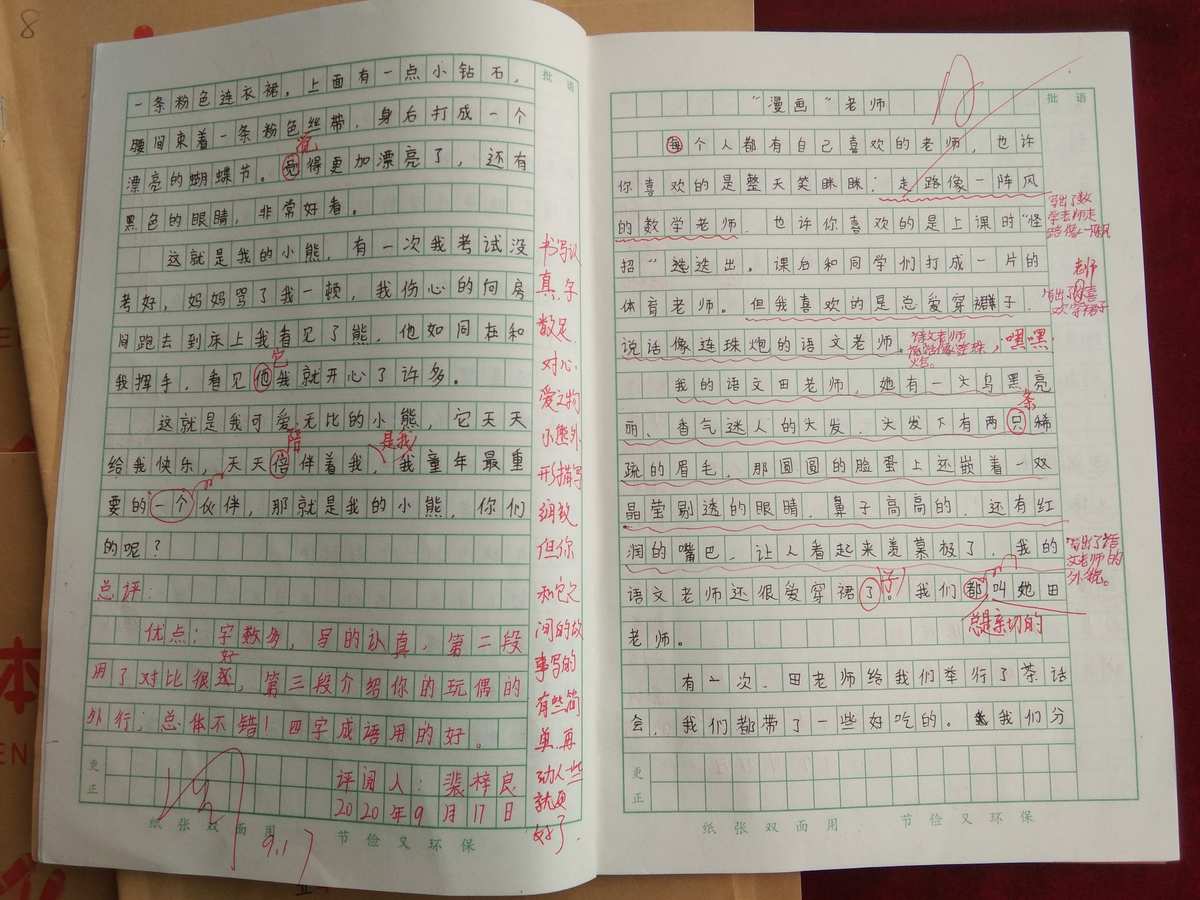 8
批 语
一条粉色连衣裙，上面有一点小钻石，
腰间束着一条粉色丝带，身后打成一个
漂亮的蝴蝶节。觉得更加漂亮了，还有
黑色的眼睛，非常好看。
这就是我的小熊，有一次我考试没
考好，妈妈骂了我一顿，我伤心的向房
间跑去到床上我看见了熊，他如同在和
它
我挥手，看见他我就开心了许多。
这就是我可爱无比的小熊，它天天
陪
是我
给我快乐，天天倍伴着我，我童年最重
要的一个伙伴，那就是我的小熊，你们
的呢？
总评：
优点：字数多，写的认真，第二段
好
用了对比很，第三段介绍你的玩偶的
外行；总体不错！四字成语用的好。
评阅人：裴梓良
2020年9月17日
9.17
书写认
真，字
数足，
对心
爱之物
小熊外
形描写
细致
但你
和它之
间的故
事写的
有些简
单，再
动人一些
就更
好了。
更正
纸张双面用 节俭又环保
批 语
“漫画”老师
每个人都有自己喜欢的老师，也许
你喜欢的是整天笑眯眯；走路像一阵风
的数学老师，也许你喜欢的是上课时“怪
招”迭迭出，课后和同学们打成一片的
体育老师。但我喜欢的是总爱穿裙子，
说话像连珠炮的语文老师，嘿嘿
我的语文田老师，她有一头乌黑亮
条
丽、香气迷人的头发，头发下有两只稀
疏的眉毛，那圆圆的脸蛋上还嵌着一双
晶莹剔透的眼睛，鼻子高高的，还有红
润的嘴巴，让人看起来羡慕极了，我的
语文老师还很爱穿裙了。我们都叫她田
子
总是亲切的
老师。
有一次，田老师给我们举行了茶话
会，我们都带了一些好吃的。我们分
写出了数
学老师走
路像一阵风
写出了老师喜
欢穿裙子
写出了语
文老师的
外貌。
更正
纸张双面用 节俭又环保